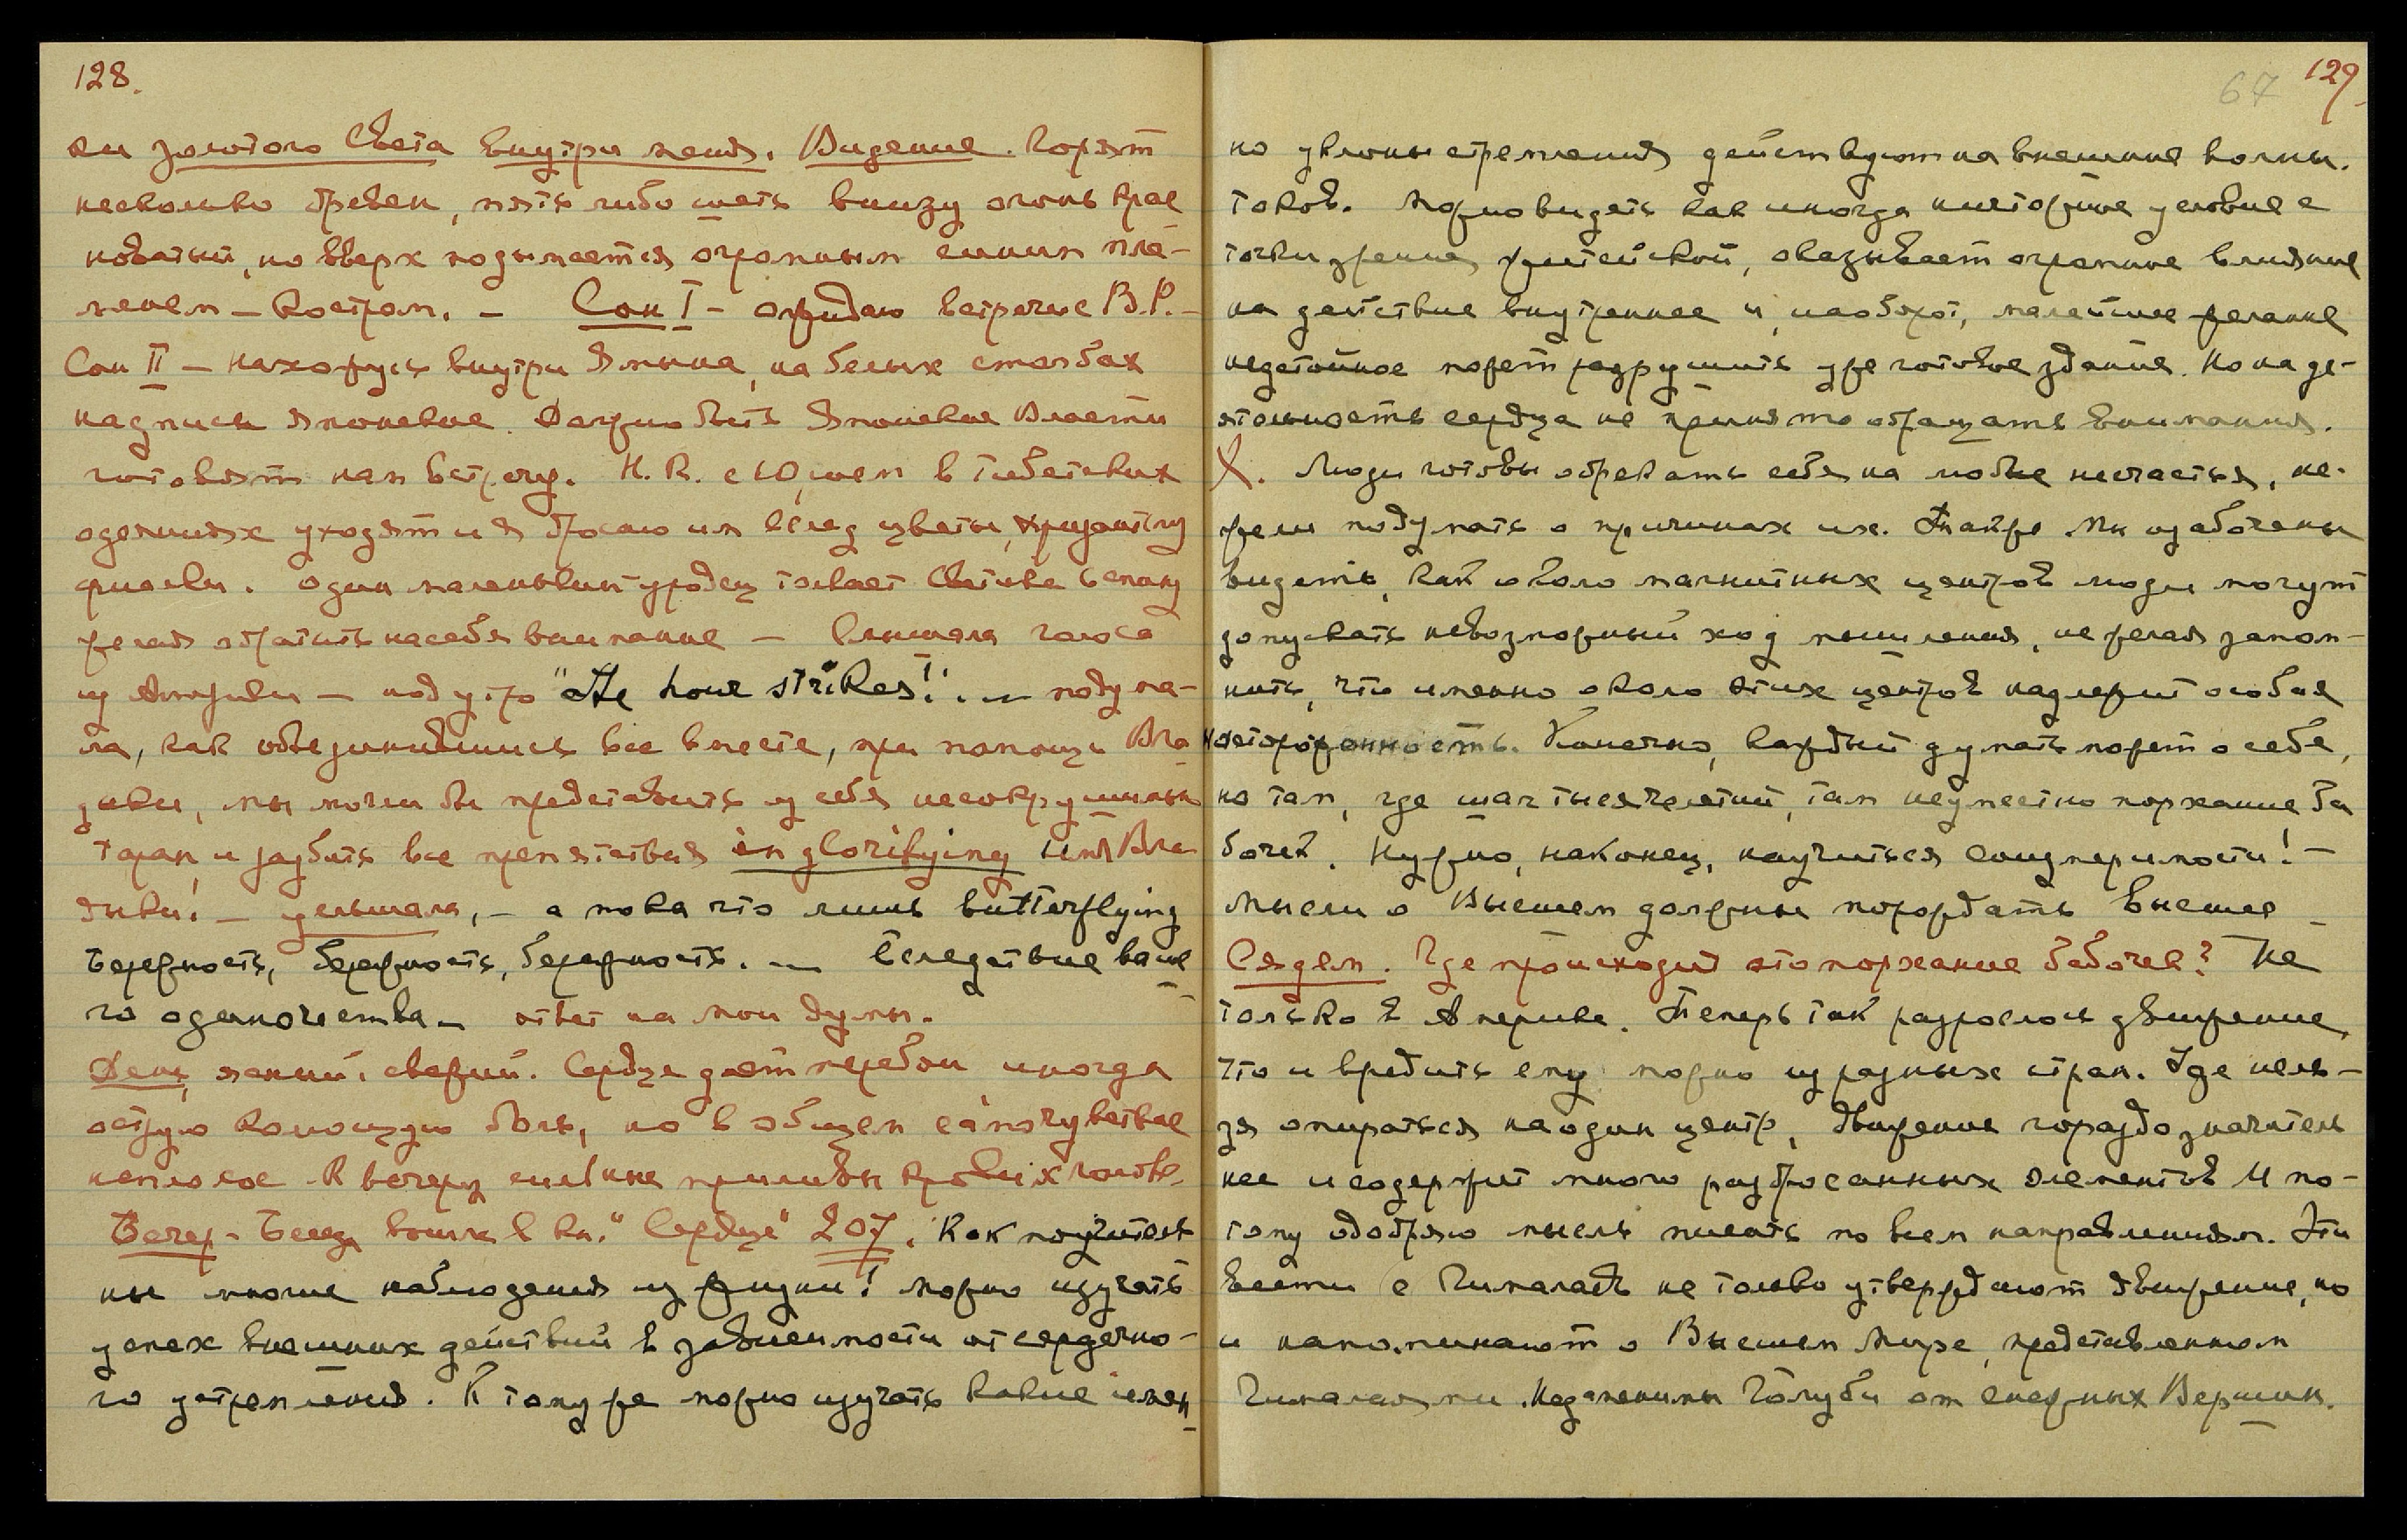 128.
ки золотого Света внутри меня. Видение. Горят
несколько бревен, пять либо шесть внизу огонь крас
новатый, но вверх подымается огромным синим пла-
менем – костром. – Сон I – ожидаю встречи с В.Р. –
Сон II – нахожусь внутри Ямына, на белых столбах
надписи японские. Должно быть Японские Власти
готовят нам встречу. Н.К. с Юшей в тибетских
одеяниях уходят и я бросаю им вслед цветы, хризантему
фиалки. Один маленький уродец толкает Светика в спину
желая обратить на себя внимание – Слышала голоса
из Америки – под утро "The hour strikes!". – подума-
ла, как объединившись все вместе, при помощи Вла
дыки, мы могли бы представить из себя несокрушимый
таран и разбить все препятствия in glorifying имя Вла-
дыки! – услышала, – а пока что лишь butterflying
Бережность, бережность, бережность. – Вследствие ваше
го одиночества – ответ на мои думы.
День, ясный, свежий. Сердце дает перебои иногда
острую колющую боль, но в общем самочувствие
неплохое. К вечеру сильные приливы крови к голове.
Вечер – Беседа вошла в кн. "Сердце" 207. Как поучитель
ны многие наблюдения из жизни! Можно изучать
успех внешних действий в зависимости от сердечно-
го устремления. К тому же можно изучать какие имен
67 129.
но уклоны стремления действуют на внешние волны
токов. Можно видеть как иногда ничтожное условие с
точки зрения житейской, оказывает огромное влияние
на действие внутреннее и, наоборот, малейшее желание
недостойное может разрушить уже готовое здание. Но на де-
ятельность сердца не принято обращать внимания.
X. Люди готовы обрекать себя на любые несчастья, не-
жели подумать о причинах их. Также Мы озабочены
видеть, как около магнитных центров люди могут
допускать невозможный ход мышления, не желая запом-
нить, что именно около этих центров надлежит особая
настороженность. Конечно, каждый думать может о себе,
но там, где шаг тысячелетий, там неуместно порхание ба
бочек. Нужно, наконец, научиться соизмеримости! –
Мысли о Высшем должны порождать высшее –
Сядем. Где происходит это порхание бабочек? Не
только в Америке. Теперь так разрослось движение,
что и вредить ему можно из разных стран. Где нель-
зя опираться на один центр, движение гораздо значитель
нее и содержит много разбросанных элементов И по-
тому одобряю мысль писать по всем направлениям. Эти
вести с Гималаев не только утверждают движение, но
и напоминают о Высшем Мире, представленном
Гималаями. Незаменимы Голуби от снежных Вершин.